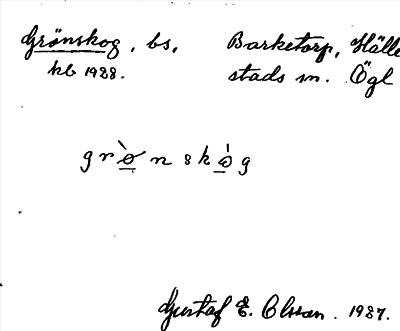 Grönskog, bs, Barketorp, Hälle
kb 1928. stads sn. Ögl
grø̀nskåg
Gustaf E. Olsson. 1927.